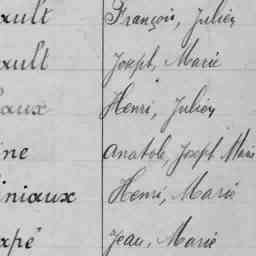 ault François, Julien
ault Joseph, Marie
aux Henri, Julien
ine Anatole, Joseph Marie
iniaux Henri, Marie
xpé Jean, Marie